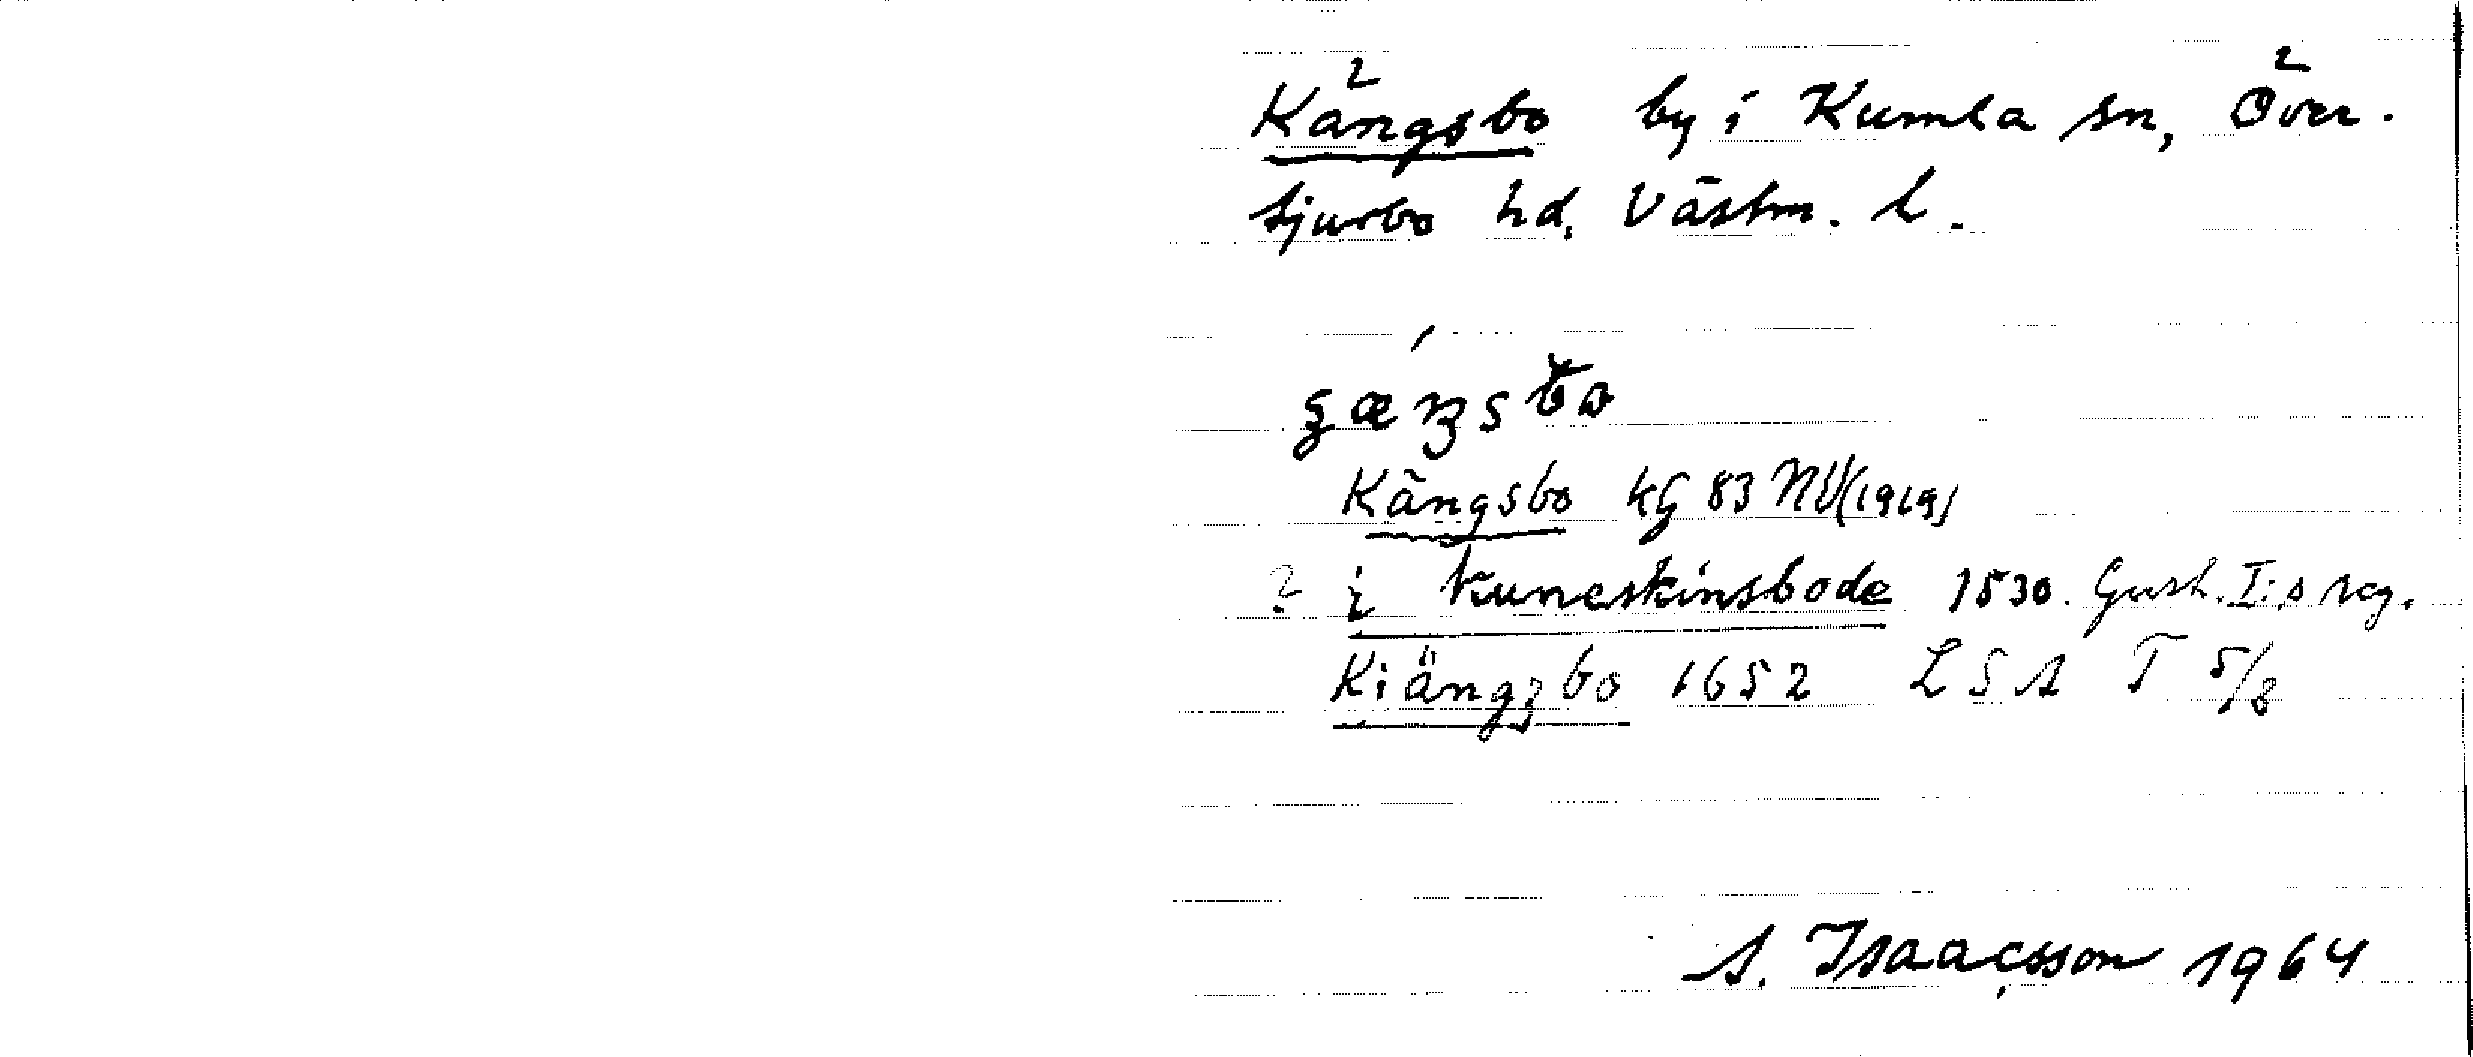 Kängsbo by i Kumla sn, Över-
tjurbo hd, Västm. l.
Kängsbo kg 83 NV (1919)
? i kuneskinsbode 1530. Gust. I:s reg.
Kiängzbo 1652 LSA T 5/8
A. Isaacsson 1964